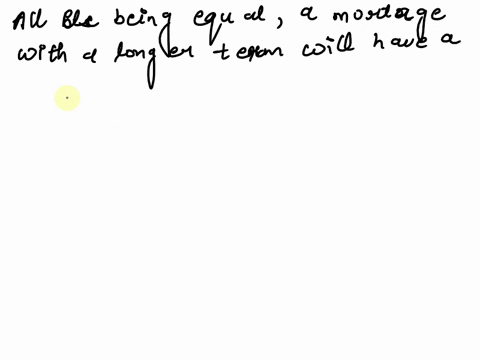 All else being equal, a mortage
with a longer term will have a